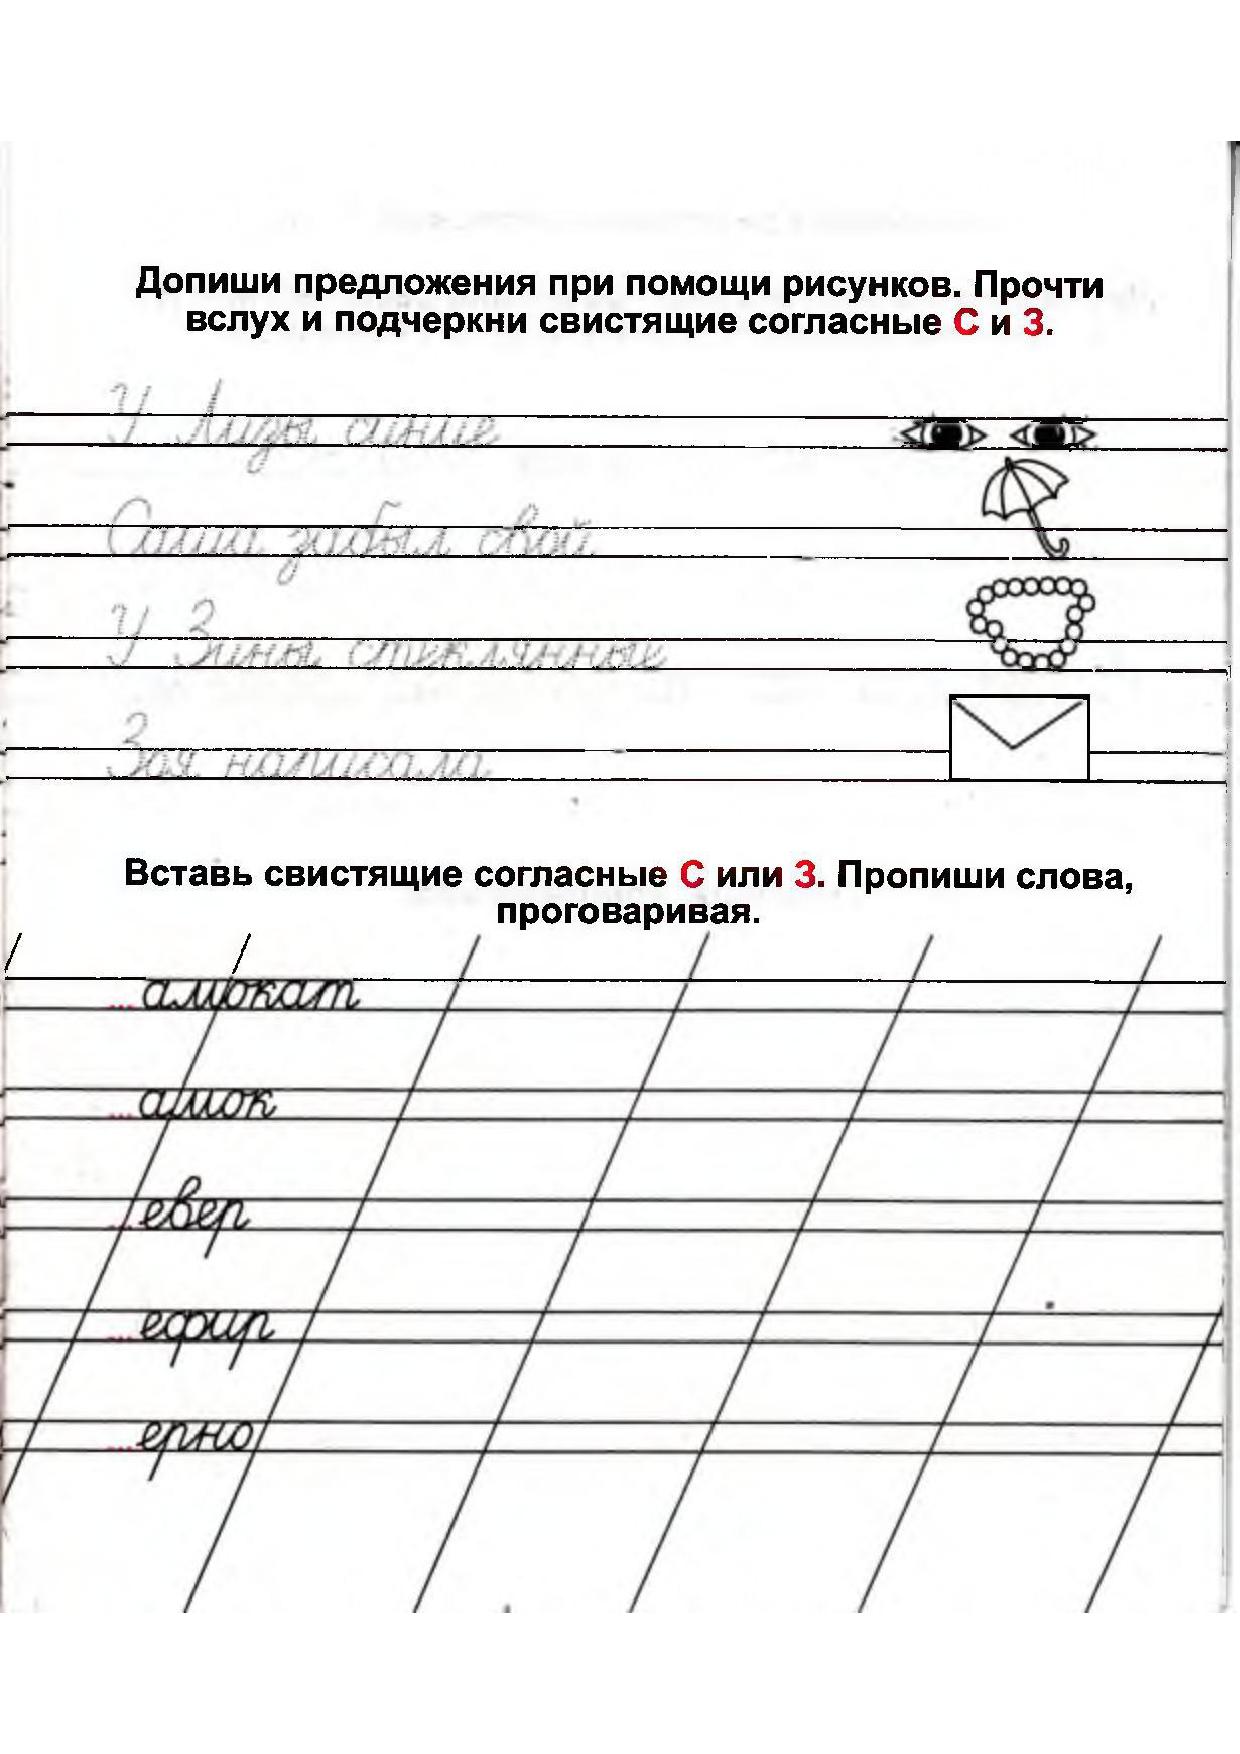 Допиши предложения при помощи рисунков. Прочти
вслух и подчеркни свистящие согласные С и З.
У Лизы синие
Саша забыл свой
У Зины стеклянные
Зоя написала
Вставь свистящие согласные С или З. Пропиши слова,
проговаривая.
...амокат
...амок
...евер
...ефир
...ерно